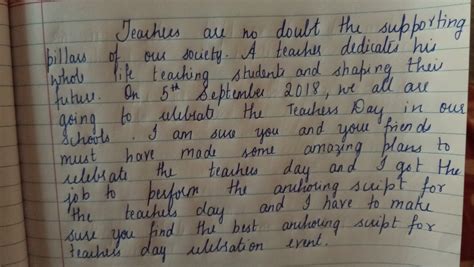 Teachers are no doubt the supporting
pillars of our society. A teacher dedicates his
whole life teaching students and shaping their
future. On 5th September 2018, we all are
going to celebrate the Teachers Day in our
schools. I am sure you and your friends
must have made some amazing plans to
celebrate the teachers day and I got the
job to perform the anchoring script for
the teachers day and I have to make
sure you find the best anchoring script for
teachers day celebration event.